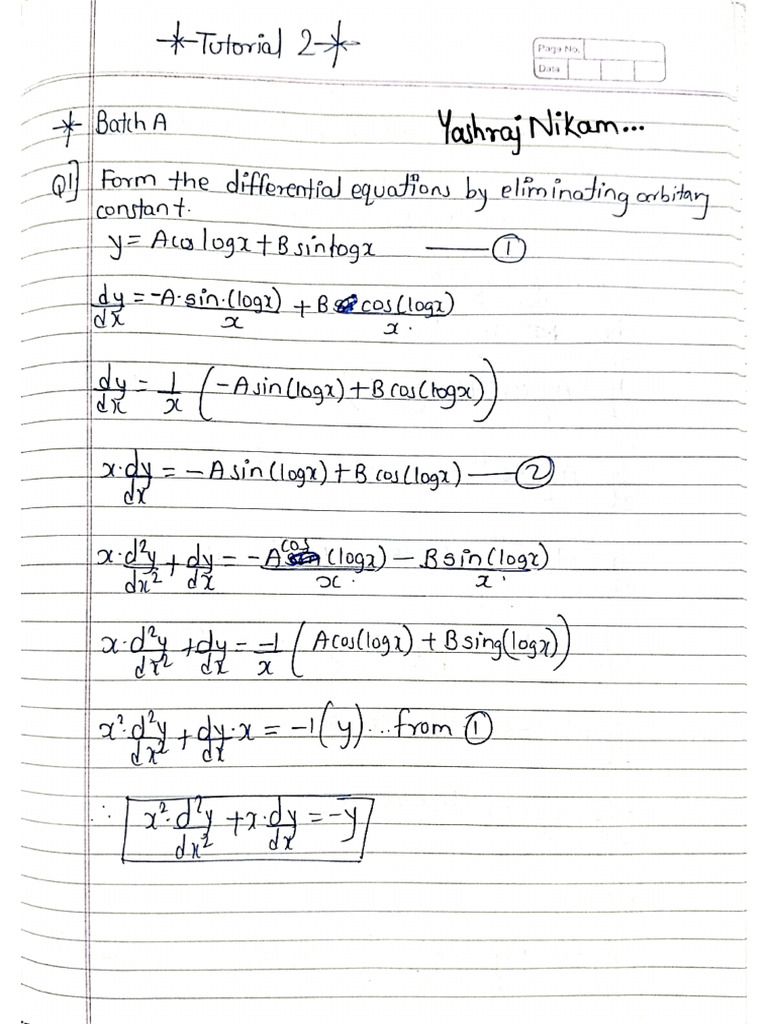 Tutorial 2
Page No.
Date
Batch A
Yashraj Nikam...
Q1] Form the differential equations by eliminating arbitary
constant.
y = A cos logx + B sin logx —— ①
dy/dx = -A·sin·(logx)/x + B cos(logx)/x.
dy/dx = 1/x (-A sin(logx) + B cos(logx))
x·dy/dx = -A sin(logx) + B cos(logx) —— ②
x·d²y/dx² + dy/dx = -A cos(logx)/x. - B sin(logx)/x.
x·d²y/dx² + dy/dx = -1/x (A cos(logx) + B sing(logx))
x²·d²y/dx² + dy/dx·x = -1(y)... from ①
∴ x²·d²y/dx² + x·dy/dx = -y